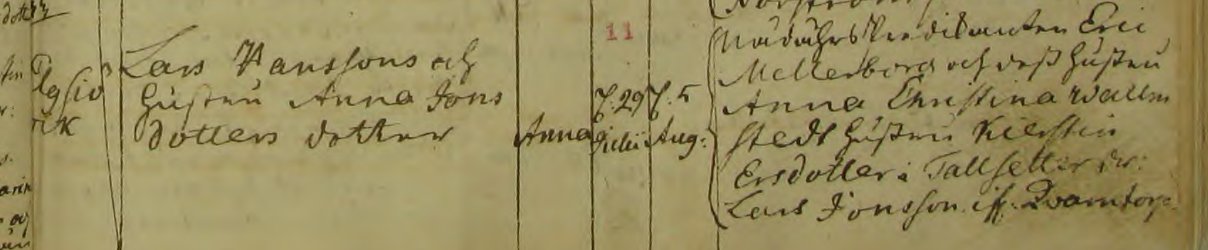 11
Lars Hanssons och
hustru Anna Jons
dotters dotter
Anna
d. 29 Julii
d. 5 Aug:
Nådåhrs Predikanten Eric
Mellerborg och dess hustru
Anna Christina Wallen
stedt hustru Kierstin
Ersdotter i Tallsetter dr:
Lars Jonsson if: Qvarntorp